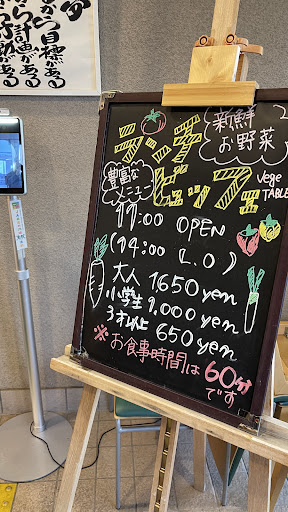 から目標がある
から計画がある
ら行動がある
ランチ
新鮮
お野菜
豊富な
メニュー
ビュッフェ
vege
TABLE
11:00 OPEN
(14:00 L.O)
大人 1650yen
小学生 1.000yen
3才以上 650yen
※お食事時間は60分
です